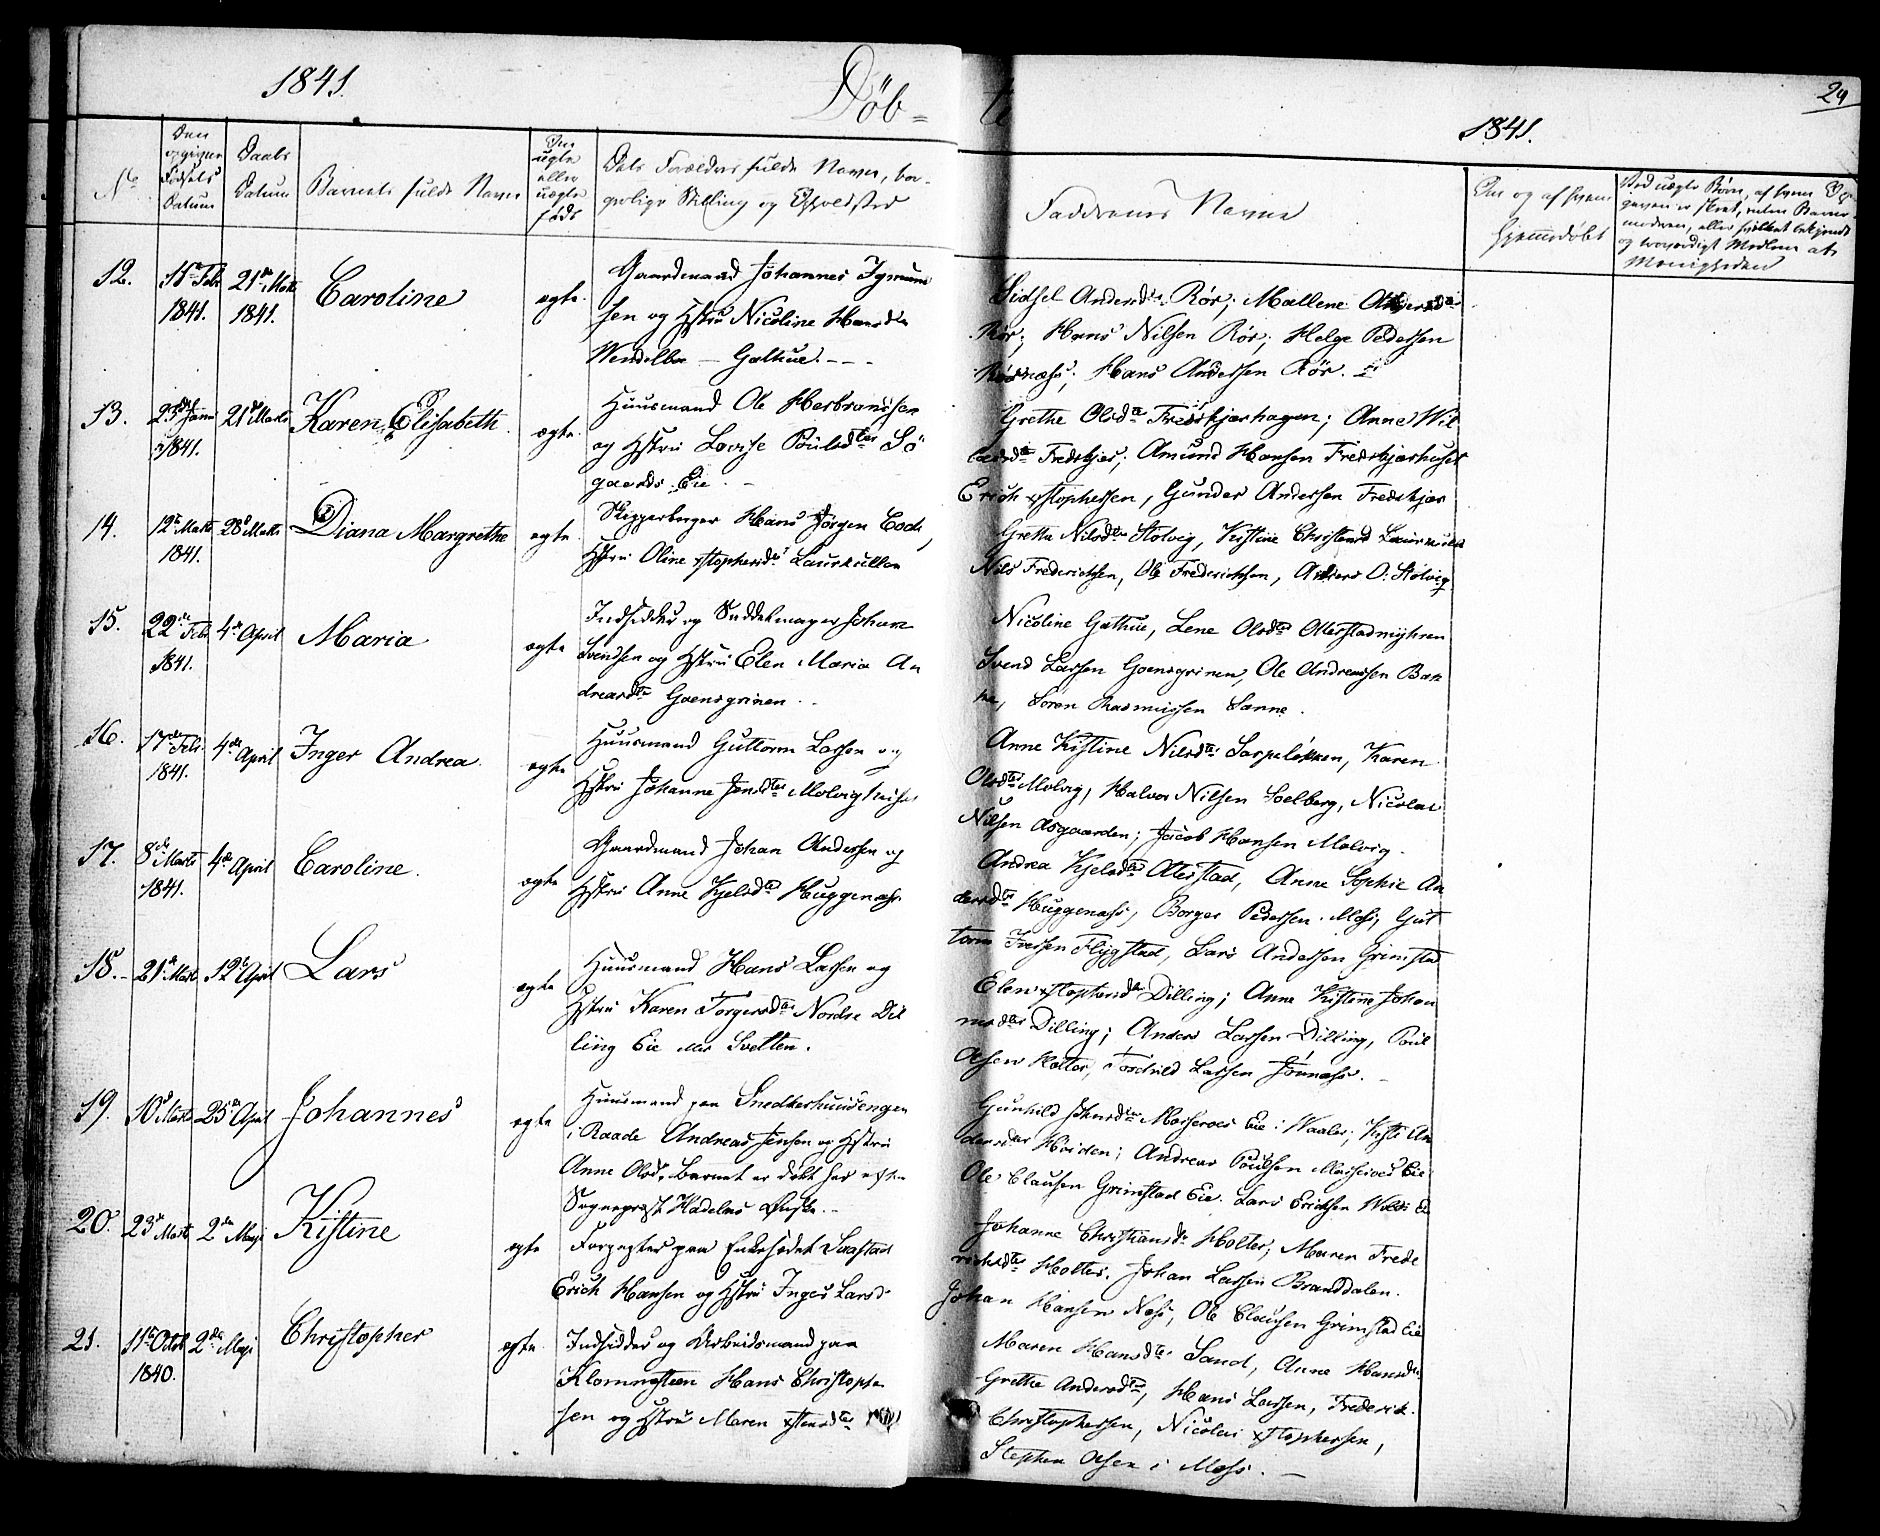 1841.
Döb=
te
1841.
29
No
Den opgivne Fødsels Datum
Daabs Datum
Barnets fulde Navn
Om ægte eller uægte født
Dets Forældres fulde Navne, borgerlige Stilling og Opholdsted
Faddernes Navne
Om og af hvem hjemmedøbt
Ved uægte Børn, af hvem Opgaven er skeet, enten Barnemoderen, eller hvilket bekjendt og troværdigt Medlem af Menigheden
12.
15de Febr 1841.
21de Marts 1841.
Caroline
ægte.
Gaardmand Johannes
sen og Hstru Nicoline Hansd
Gathue.
Sidsel Andersdr Rör; Mallene
Rör; Hans Nilsen Rör; Helge Pedersen
Hans Andersen Rör.
13.
23de Janu 1841.
21de Marts
Karen Elisabeth.
ægte.
Huusmand Ole Herbransen
og Hstru Lovise Poulsdter Sö
gaards Eie.
Grethe Olsdtr Fredskjærhagen; Anne Wil
Fredskjær; Amund Hansen Fredskjærhuset
Erich Xstophersen, Gunder Andersen Fredskjær
14.
12te Marts 1841.
28de Marts
Diana Margrethe
ægte.
Skipperborger Hans Jörgen Cock,
Hstru Oline Xstophersdr Laurkullen
Grethe Nilsdtr Stölvig, Kistine Christensd Laurkullen
Nils Frederichsen, Ole Frederichsen, Anders O: Stölvig
15.
22de Febr 1841.
4de April
Maria
ægte
Indsidder og Saddelmager Johan
Svendsen og Hstru Elen Maria An
dreasdtr Goensgrinen.
Nicoline Gathue, Lene Olsdtr Otterstadmyhren
Svend Larsen Goensgrinen, Ole Andreassen Bak
ke, Sören Rasmussen Sanne.
16.
17de Febr. 1841.
4de April
Inger Andrea.
ægte
Huusmand Guttorm Larsen og
Hstru Johanne Jensdter Molvighuset
Anne Kistine Nilsdtr Sarpeløkken, Karen
Olsdtr Molvig, Halvor Nilsen Soelberg, Nicolai
Nilsen Asgaarden; Jacob Hansen Molvig.
17.
8de Marts 1841.
4de April
Caroline.
ægte
Gaardmand Johan Andersen og
Hstru Anne Kjelsdtr Huggenæs
Andrea Kjelsdtr Aterstad, Anne Sophie An
dersdtr Huggenæs, Borger Pedersen Moss, Gut
torm Iversen Flygstad, Lars Andersen Grimstad
18.
21de Marts
12te April
Lars
ægte
Huusmand Hans Larsen og
Hstru Karen Torgersdtr Nordre Dil
ling Eie eller Svelten.
Elen Xstophersdtr Dilling; Anne Kistine Johan
nesdtr Dilling; Anders Larsen Dilling, Poul
Olsen Holter, Tordvild Larsen
19.
10de Marts
25de April
Johannes
ægte
Huusmand paa Snedkerhuusengen
i Raade Andreas Jensen og Hstru
Anne Olsdr. Barnet er döbt her efter
Sogneprest Hadelns Önske.
Gunhild Johnsdtr Mosseroes Eie i Vaaler; Kisti An
dersdtr Heiden; Andreas Poulsen Mosseroes Eie
Ole Clausen Grimstad Eie. Lars Erichsen
20.
23de Marts
2den Maji
Kistine
ægte
Forpagter paa Enkesædet Saastad
Erich Hansen og Hstru Inger Larsd
Johanne Christiansdr Holter; Maren Frede
richsdtr Holter. Johan Larsen Branddalen.
Johan Hansen Næs, Ole Clausen Grimstad Eie
21.
11te Octob 1840.
2den Maji
Christopher
ægte.
Indsidder og Arbeidsmand paa
Klommesteen Hans Christopher
sen og Hstru Maren Xstensdtr
Maren Hansdtr Sand, Anne Hansdtr
Grethe Andersdtr, Hans Larsen, Frederik
Christophersen, Nicolai Xstophersen,
Stephen Olsen i Moss.